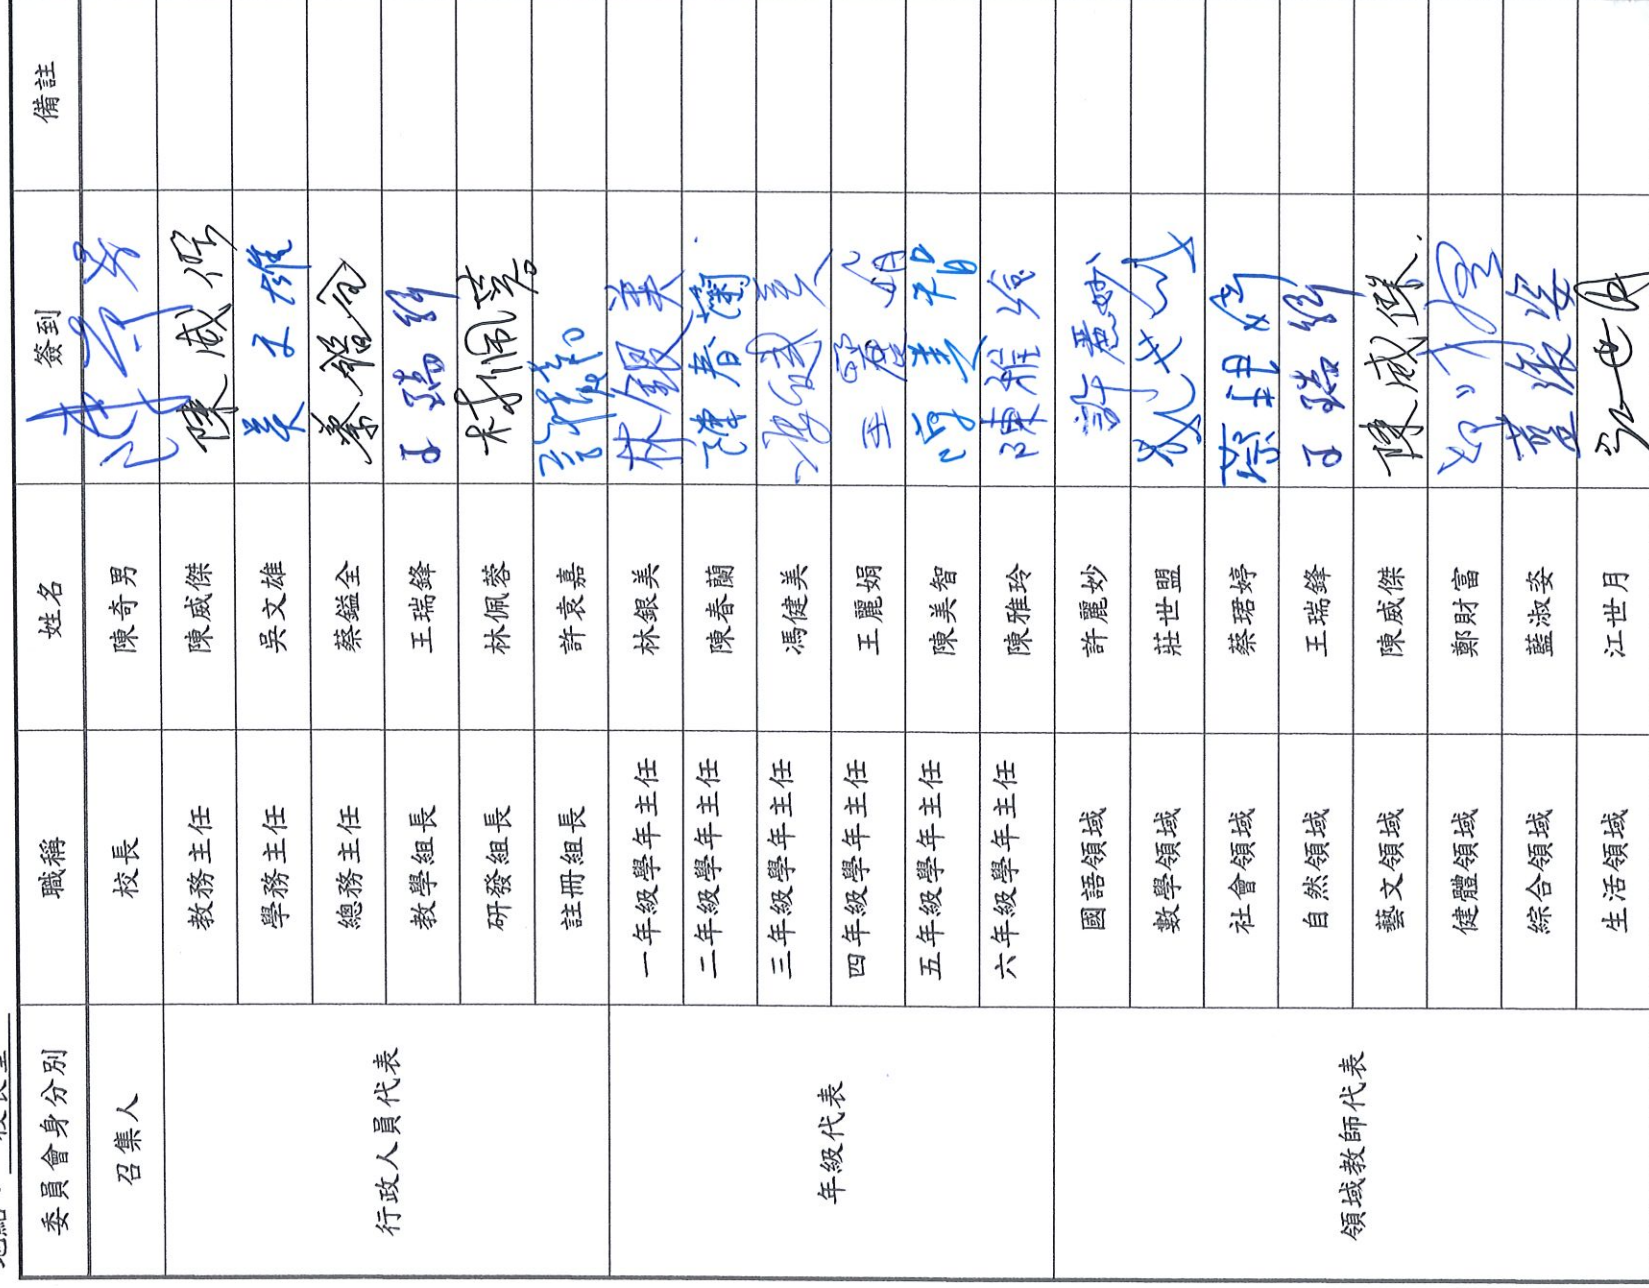 委員會身分別 職稱 姓名 簽到 備註
召集人 校長 陳奇男
行政人員代表 教務主任 陳威傑 陳威傑
學務主任 吳文雄 吳文雄
總務主任 蔡鎰全 蔡鎰全
教學組長 王瑞鋒 王瑞鋒
研發組長 林佩蓉 林佩蓉
註冊組長 許袁嘉 許袁嘉
年級代表 一年級學年主任 林銀美 林銀美
二年級學年主任 陳春蘭 陳春蘭
三年級學年主任 馮健美 馮健美
四年級學年主任 王麗娟 王麗娟
五年級學年主任 陳美智 陳美智
六年級學年主任 陳雅玲 陳雅玲
領域教師代表 國語領域 許麗妙 許麗妙
數學領域 莊世盟
社會領域 蔡珺婷 蔡珺婷
自然領域 王瑞鋒 王瑞鋒
藝文領域 陳威傑 陳威傑
健體領域 鄭財富
綜合領域 藍淑姿 藍淑姿
生活領域 江世月 江世月